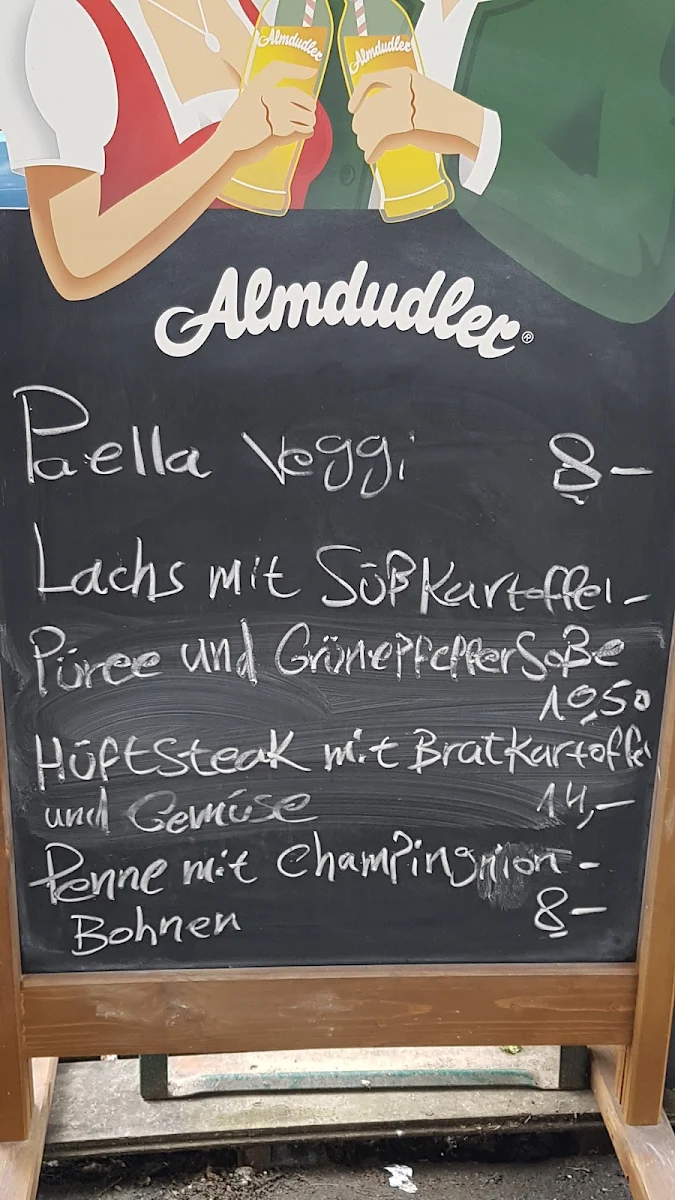 Almdudler
Almdudler
Almdudler®
Paella Veggi 8-
Lachs mit Süßkartoffel-
Püree und GrünepfefferSoße
10,50
Hüftsteak mit Bratkartoffel
und Gemüse 14,-
Penne mit Champingnion-
Bohnen 8-